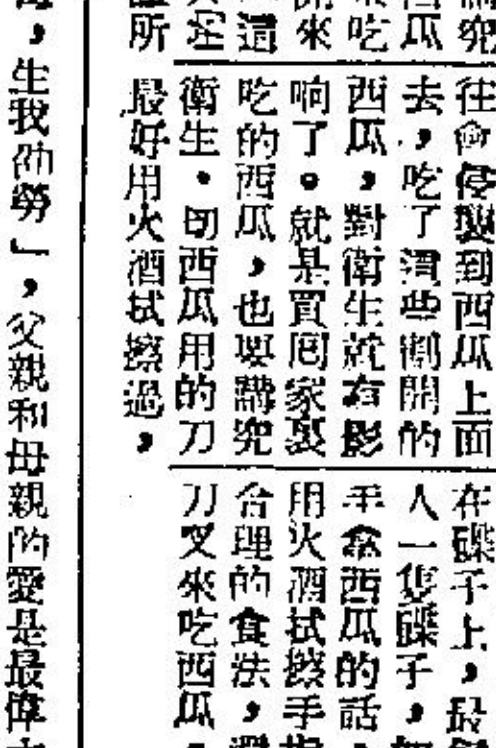 究
瓜
吃
來
這
所
往會侵襲到西瓜上面
去,吃了這些割開的
西瓜,對衛生就有影
响了。就是買囘家裏
吃的西瓜,也要講究
衛生。切西瓜用的刀
最好用火酒拭擦過,
在碟子上,最
人一隻碟子,
手拿西瓜的話,
用火酒拭擦手指
合理的食法,
刀叉來吃西瓜,
,生我劬勞」,父親和母親的愛是最偉